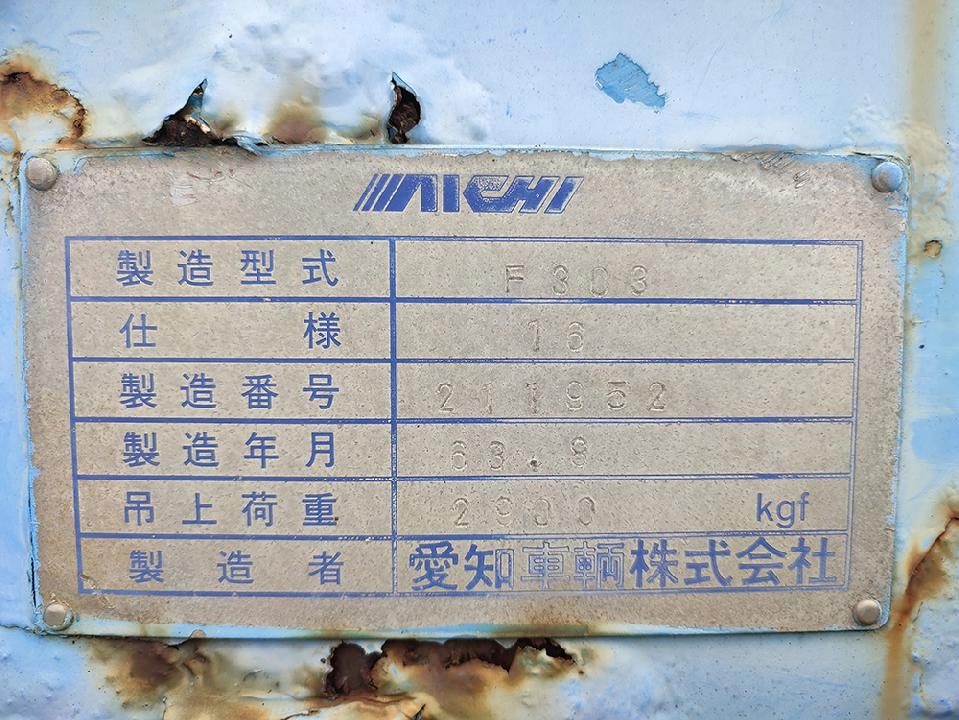 AICHI
製造型式 F303
仕様 16
製造番号 211952
製造年月 63.8
吊上荷重 2900 kgf
製造者 愛知車輌株式会社